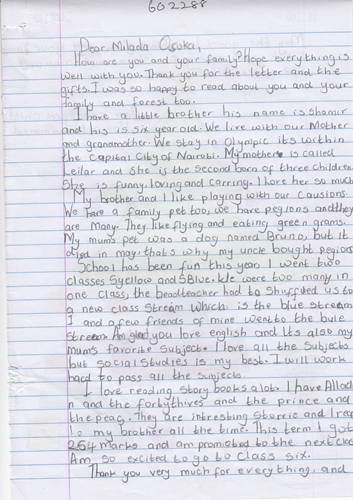 602288
Dear Milada Osuka,
How are you and your family? Hope everything is
well with you. Thank you for the letter and the
gifts. I was so happy to read about you and your
family and forest too.
I have a little brother his name is Shamir
and his is six year old. We live with our Mother
and grandmother. We stay in Olympic its within
the Capital City of Nairobi. My mother is called
Leilar and she is the second born of three children.
She is funny loving and carring. I love her so much
My brother and I like playing with our causions.
We have a family pet too, we have pegions and they
are Many. They like flying and eating green grams.
My mums pet was a dog named Bruno, but it
died in may that's why my uncle bought pegions
School has been fun this year I went two
classes 5yellow and 5Blue. We were two many in
one class, the headteacher had to Shuffled us to
a new class stream which is the blue stream
I and a few friends of mine went to the bule
Stream. Am glad you love english and Its also my
mums favorite Subject. I love all the Subjects
but Social Studies is my best. I will work
hard to pass all the subjects.
I love reading story books alot. I have Allad
n and the fortythives and the prince and
the peag. They are intresting storrie and I read
to my brother all the time. This term I got
264 marks and am promoted to the next class
Am so excited to go to class six.
Thank you very much for everything, and